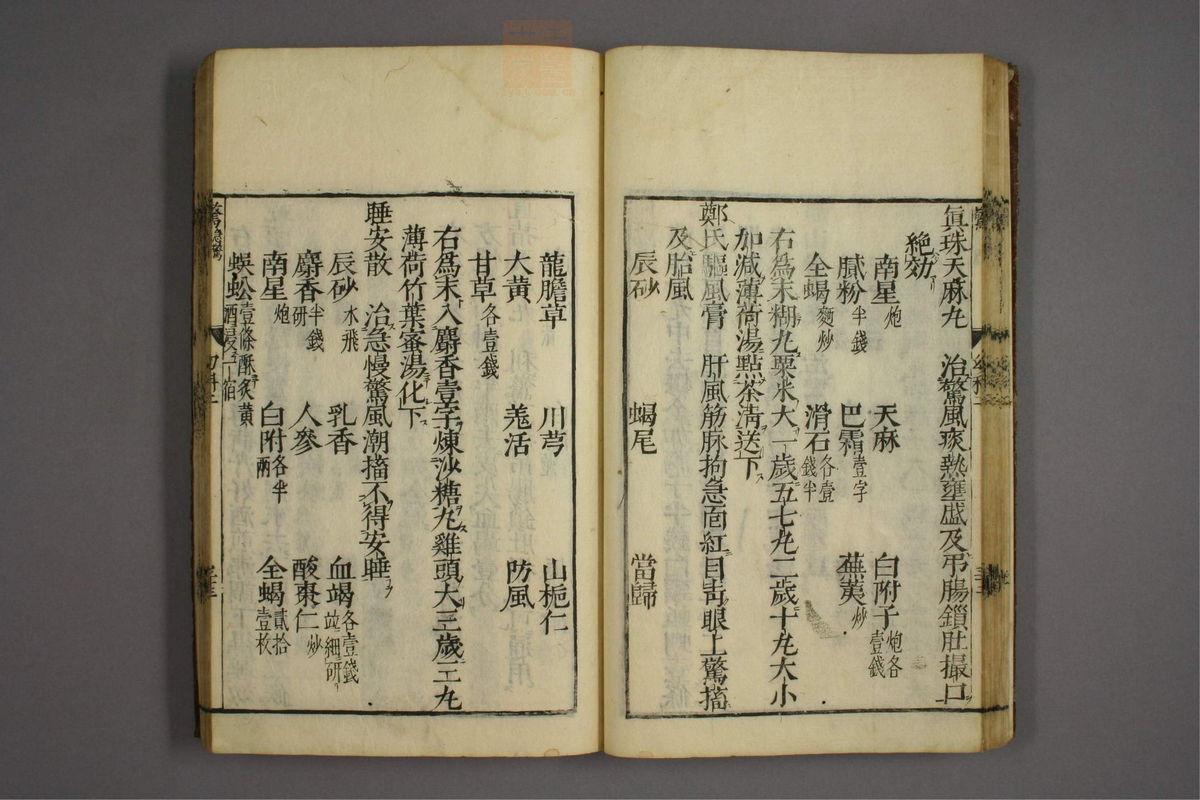 眞珠天麻丸　治驚風痰熱壅盛及弔腸鎖肚撮口
絶効
南星炮　天麻　白附子炮各壹錢
膩粉半錢　巴霜壹字　蕪荑炒
全蝎麵炒　滑石各壹錢半
右爲末糊丸粟米大一歲五七丸二歲十丸大小
加減薄荷湯點茶淸送下
鄭氏驅風膏　肝風筋脉拘急面紅目靑眼上驚搐
及胎風
辰砂　蝎尾　當歸
龍膽草　川芎　山梔仁
大黃　羗活　防風
甘草各壹錢
右爲末入麝香壹字煉沙糖丸雞頭大三歲三丸
薄荷竹葉蜜湯化下
睡安散　治急慢驚風潮搐不得安睡
辰砂水飛　乳香　血竭各壹錢並細研
麝香半錢研　人參　酸棗仁炒
南星炮　白附各半兩　全蝎貳拾壹枚
蜈蚣壹條酥炙黃酒浸一宿